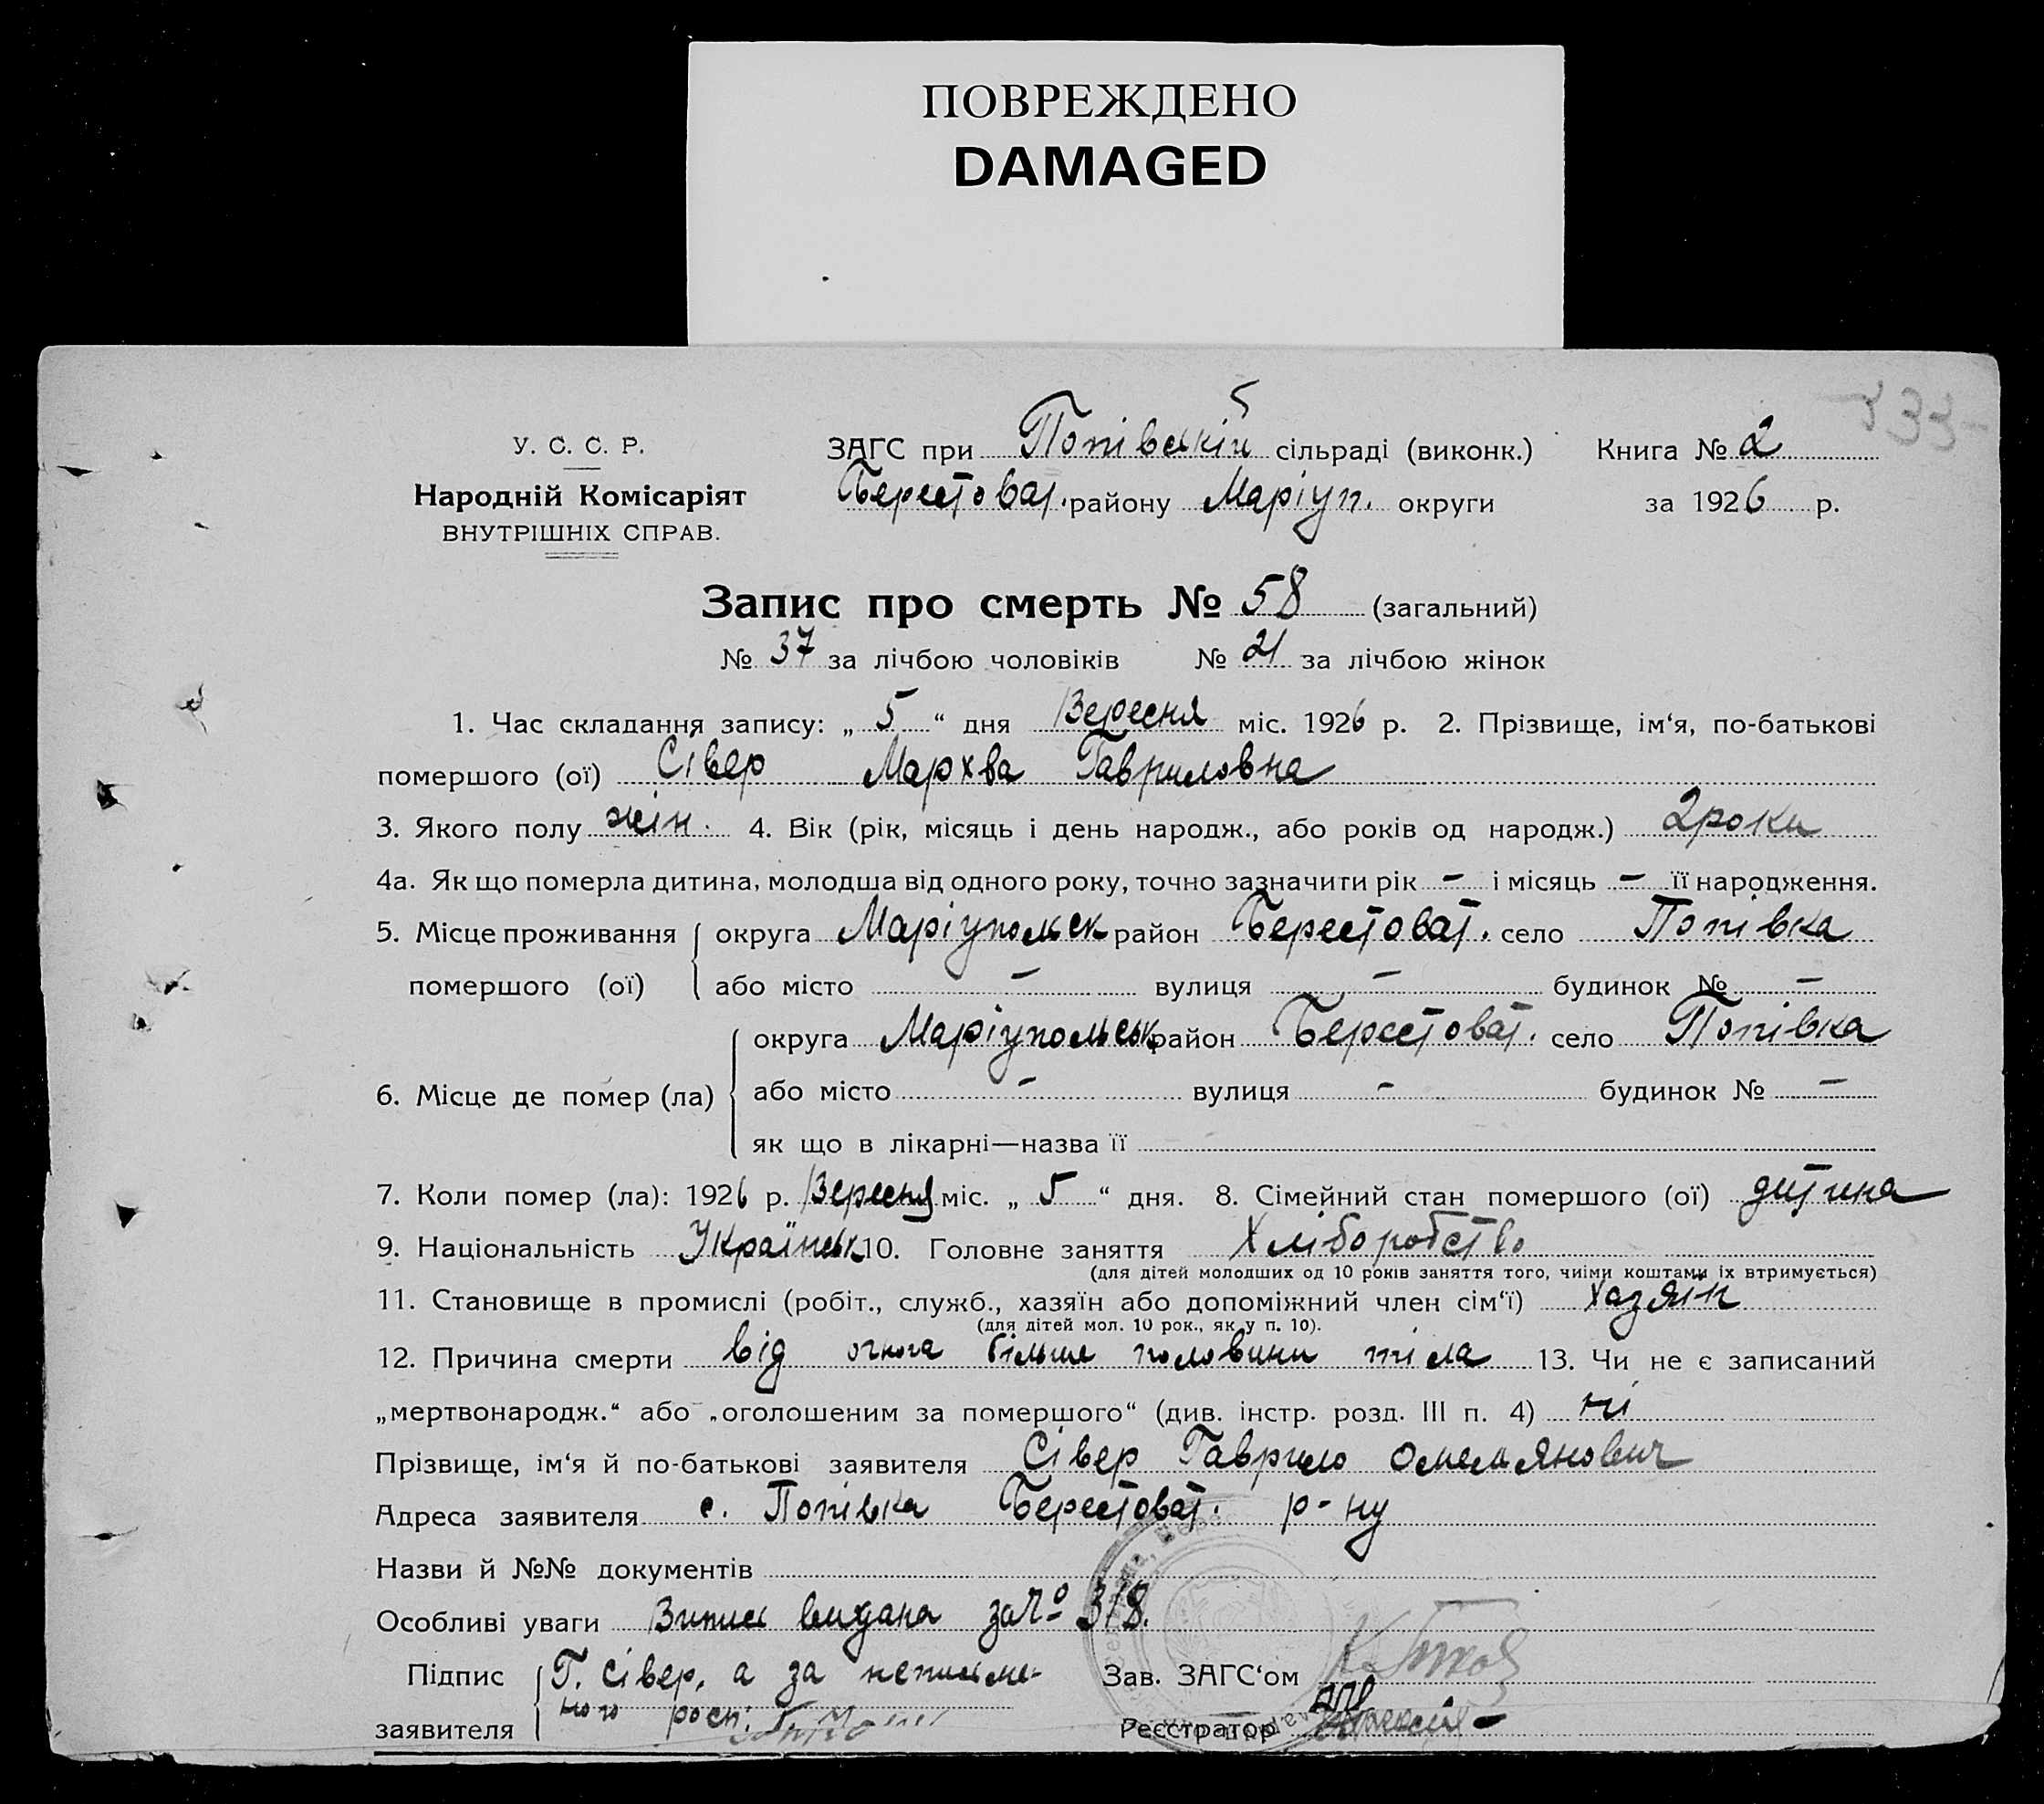 ПОВРЕЖДЕНО
DAMAGED
5
У. С. С. Р.
Народній Комісаріят
ВНУТРІШНІХ СПРАВ.
ЗАГС при Попівській сільраді (виконк.) Книга № 2
Берестоват. району Маріуп. округи за 1926 р.
Запис про смерть № 58 (загальний)
№ 37 за лічбою чоловіків № 21 за лічбою жінок
1. Час складання запису: „ 5 “ дня Вересня міс. 1926 р. 2. Прізвище, ім‘я, по-батькові
помершого (ої) Сівер Мархва Гавриловна
3. Якого полу жін. 4. Вік (рік, місяць і день народж., або років од народж.) 2 роки
4а. Як що померла дитина, молодша від одного року, точно зазначити рік – і місяць – її народження.
5. Місце проживання округа Маріупольск район Берестоват. село Попівка
помершого (ої) або місто – вулиця – будинок № –
округа Маріупольськ район Берестоват. село Попівка
6. Місце де помер (ла) або місто – вулиця – будинок № –
як що в лікарні—назва її
7. Коли помер (ла): 1926 р. Вересня міс. „ 5 “ дня. 8. Сімейний стан помершого (ої) дитина
9. Національність Українськ 10. Головне заняття Хліборобство
(для дітей молодших од 10 років заняття того, чиїми коштами їх втримується)
11. Становище в промислі (робіт., служб., хазяїн або допоміжний член сім‘ї) хазяїн
(для дітей мол. 10 рок., як у п. 10).
12. Причина смерти від огнога більше половини тіла 13. Чи не є записаний
„мертвонародж.“ або „оголошеним за помершого“ (див. інстр. розд. III п. 4) ні
Прізвище, ім‘я й по-батькові заявителя Сівер Гаврило Омельянович
Адреса заявителя с. Попівка Берестоват. р-ну
Назви й №№ документів
Особливі уваги Випись видана за № 318.
Підпис Г. Сівер, а за неписьме- Зав. ЗАГС‘ом
ного росп:
заявителя Реєстратор